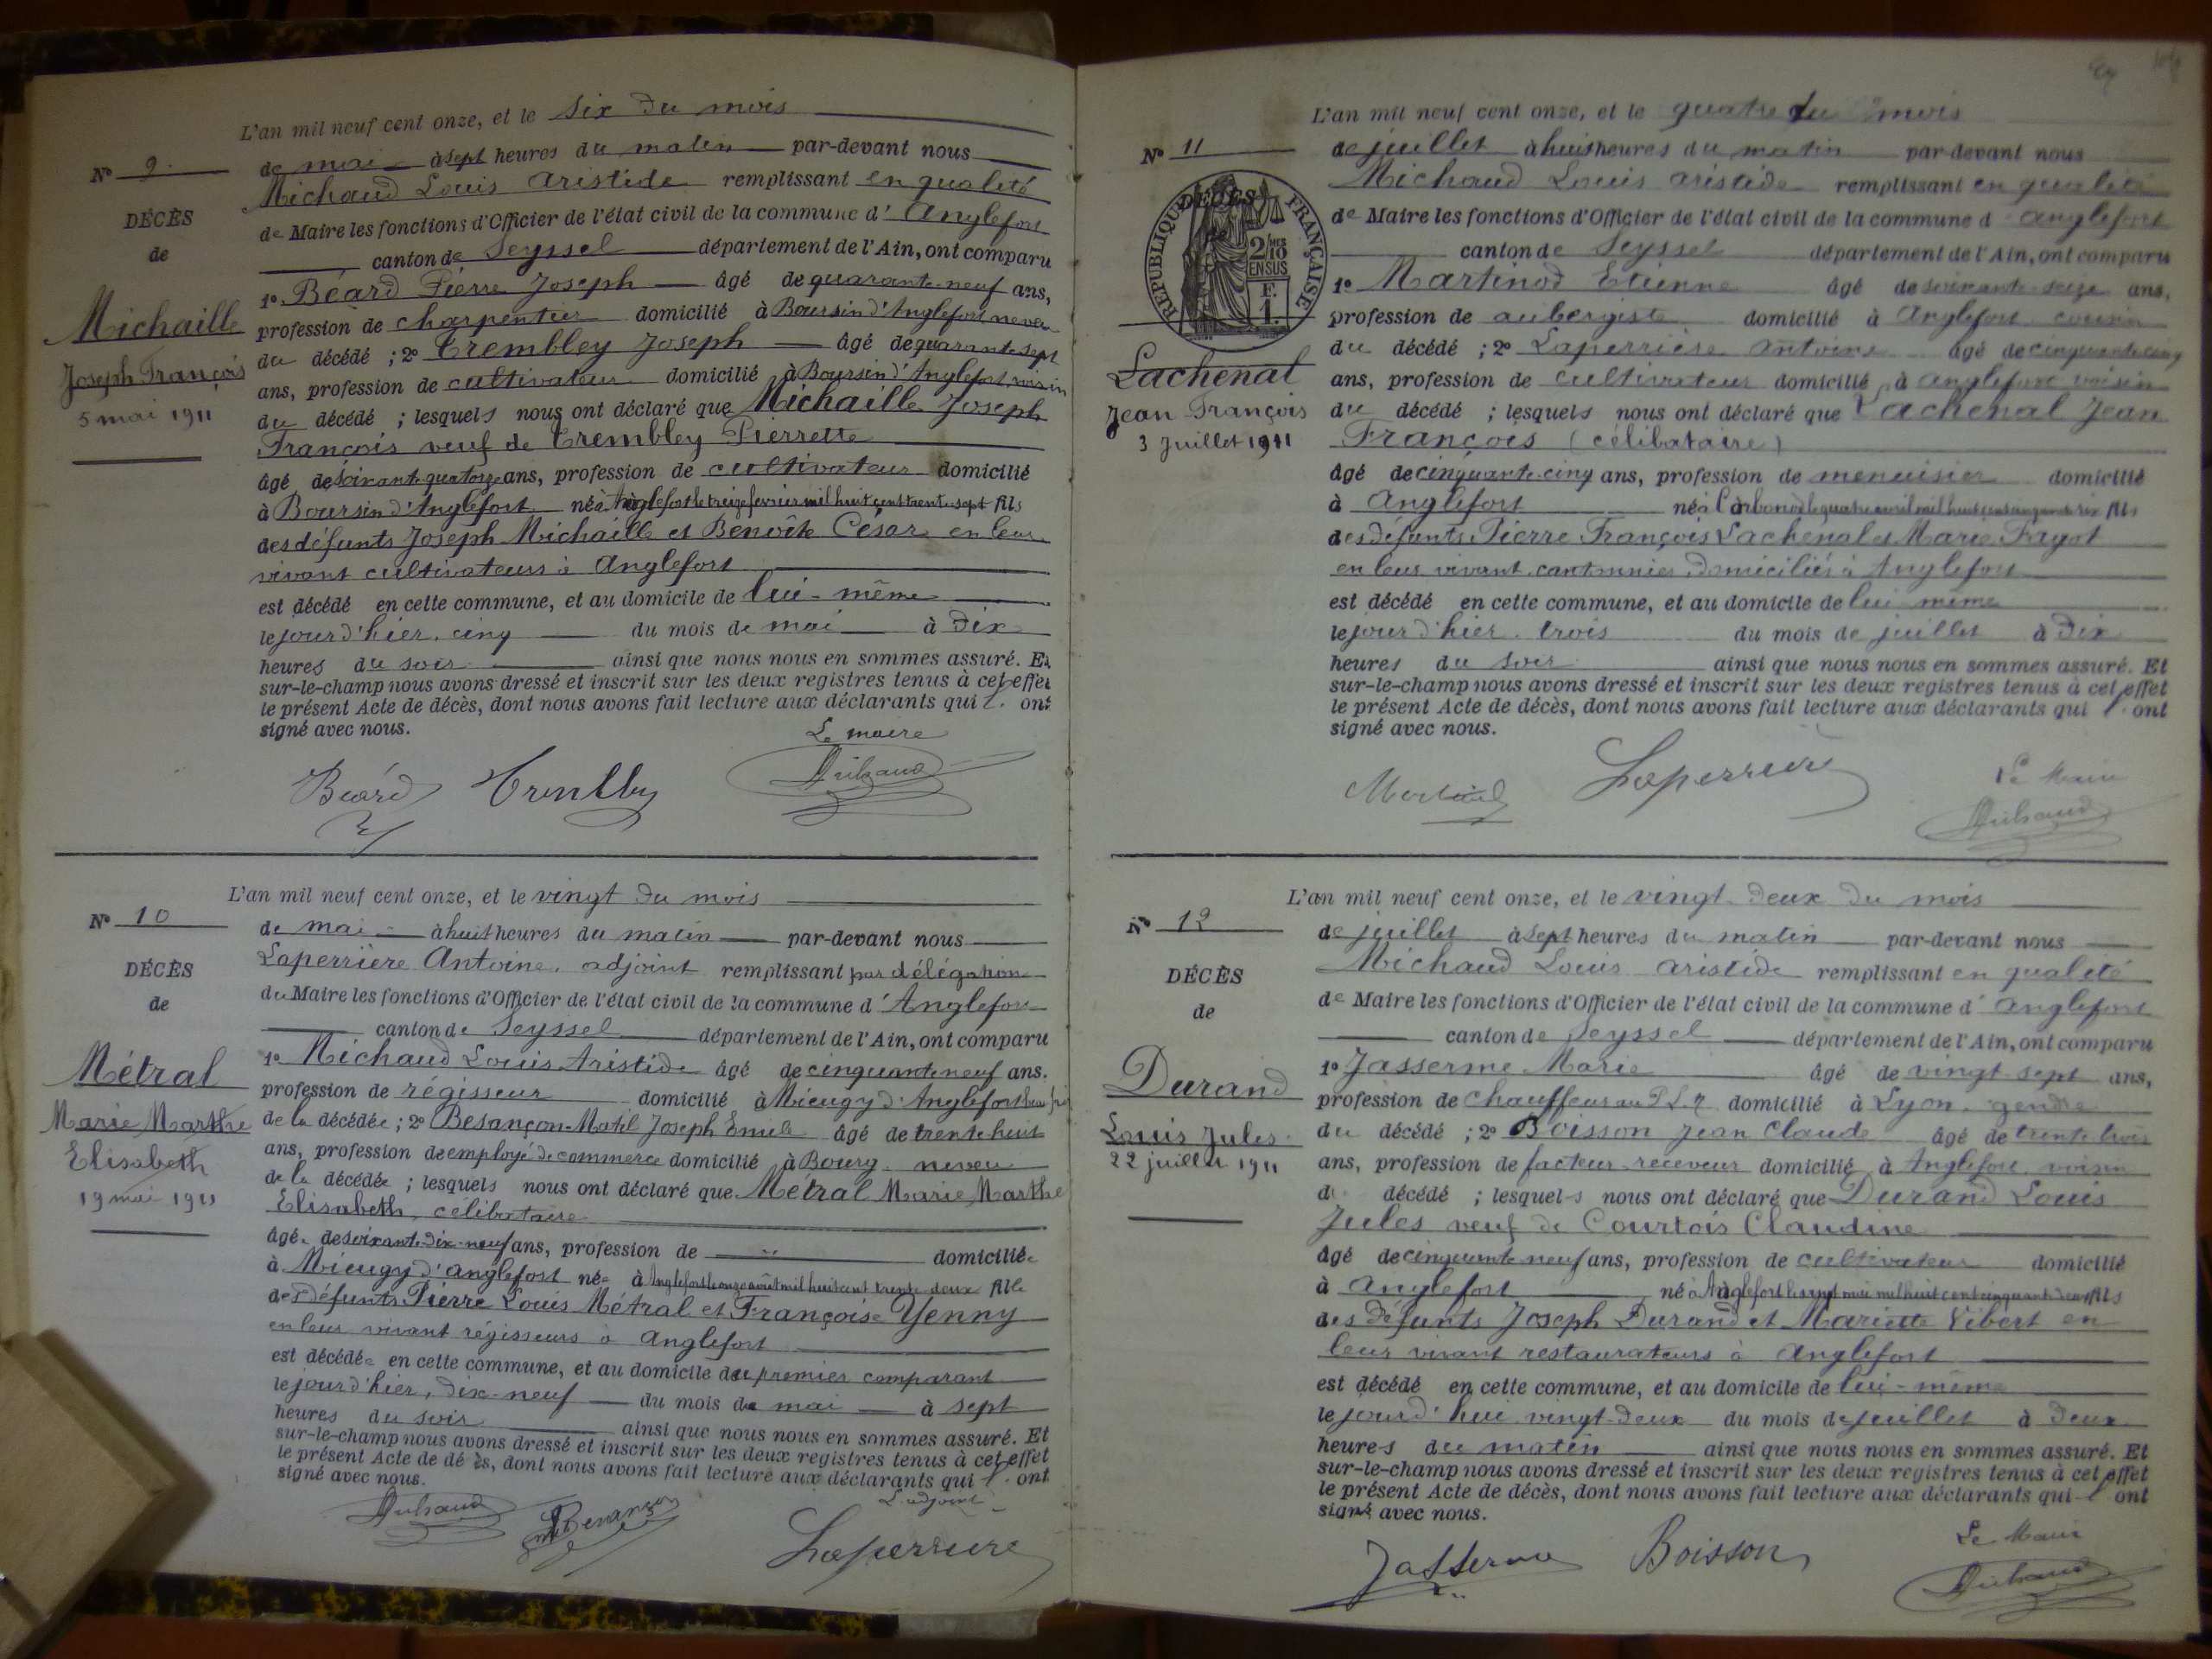 L'an mil neuf cent onze, et le six du mois
N° 9. de mai à sept heures du matin par-devant nous
Michaud Louis Aristide remplissant en qualité
de Maire les fonctions d'Officier de l'état civil de la commune d'Anglefort
canton de Seyssel département de l'Ain, ont comparu
1° Béard Pierre Joseph âgé de quarante-neuf ans,
profession de charpentier domicilié à Boursin d'Anglefort neveu
du décédé ; 2° Trembley Joseph âgé de quarante sept
ans, profession de cultivateur domicilié à Boursin d'Anglefort, voisin
du décédé ; lesquels nous ont déclaré que Michaille Joseph
François veuf de Trembley Pierrette
âgé de soixante quatorze ans, profession de cultivateur domicilié
à Boursin d'Anglefort né à Anglefort le treize fevrier mil huit cent trente-sept fils
des défunts Joseph Michaille et Benoîte César en leur
vivant cultivateurs à Anglefort
est décédé en cette commune, et au domicile de lui-même
le jour d'hier, cinq du mois de mai à dix
heures du soir ainsi que nous nous en sommes assuré. Et
sur-le-champ nous avons dressé et inscrit sur les deux registres tenus à cet effet
le présent Acte de décès, dont nous avons fait lecture aux déclarants qui l' ont
signé avec nous.
Le maire
Béard Trembley Michaud
DÉCÈS
de
Michaille
Joseph François
5 mai 1911
L'an mil neuf cent onze, et le vingt du mois
N° 10 de mai à huit heures du matin par-devant nous
Laperrière Antoine, adjoint remplissant par délégation
du Maire les fonctions d'Officier de l'état civil de la commune d'Anglefort
canton de Seyssel département de l'Ain, ont comparu
1° Michaud Louis Aristide âgé de cinquante neuf ans.
profession de régisseur domicilié à Mieugy d'Anglefort
de la décédée ; 2° Besançon-Matil Joseph Emile âgé de trente huit
ans, profession de employé de commerce domicilié à Bourg neveu
de la décédée ; lesquels nous ont déclaré que Métral Marie Marthe
Elisabeth, célibataire
âgée de soixante-dix-neuf ans, profession de " domiciliée
à Mieugy d'anglefort née à Anglefort le onze août mil huit cent trente deux fille
des défunts Pierre Louis Métral et Françoise Yenny
en leur vivant régisseurs à Anglefort
est décédée en cette commune, et au domicile du premier comparant
le jour d'hier, dix-neuf du mois de mai à sept
heures du soir ainsi que nous nous en sommes assuré. Et
sur-le-champ nous avons dressé et inscrit sur les deux registres tenus à cet effet
le présent Acte de dé ès, dont nous avons fait lecture aux déclarants qui l' ont
signé avec nous.
L'adjoint
Michaud Laperrière
DÉCÈS
de
Métral
Marie Marthe
Elisabeth
19 mai 1911
L'an mil neuf cent onze, et le quatre du mois
N° 11 de juillet à huit heures du matin par-devant nous
Michaud Louis Aristide remplissant en qualité
de Maire les fonctions d'Officier de l'état civil de la commune d'Anglefort
canton de Seyssel département de l'Ain, ont comparu
1° Martinod Etienne âgé de soixante-seize ans,
profession de aubergiste domicilié à Anglefort cousin
du décédé ; 2° Laperrière Antoine âgé de cinquante cinq
ans, profession de cultivateur domicilié à Anglefort voisin
du décédé ; lesquels nous ont déclaré que Lachenal Jean
François (célibataire)
âgé de cinquante-cinq ans, profession de menuisier domicilié
à Anglefort né à Corbonod le quatre avril mil huit cent cinquante six fils
des défunts Pierre François Lachenal et Marie Fagot
en leur vivant cantonnier, domiciliés à Anglefort
est décédé en cette commune, et au domicile de lui-même
le jour d'hier trois du mois de juillet à dix
heures du soir ainsi que nous nous en sommes assuré. Et
sur-le-champ nous avons dressé et inscrit sur les deux registres tenus à cet effet
le présent Acte de décès, dont nous avons fait lecture aux déclarants qui l' ont
signé avec nous.
Le Maire
Martinod Laperrière Michaud
DÉCÈS
RÉPUBLIQUE FRANÇAISE
2/10 MES EN SUS
F. 1.
Lachenal
Jean François
3 Juillet 1911
L'an mil neuf cent onze, et le vingt-deux du mois
N° 12 de juillet à sept heures du matin par-devant nous
Michaud Louis Aristide remplissant en qualité
de Maire les fonctions d'Officier de l'état civil de la commune d'Anglefort
canton de Seyssel département de l'Ain, ont comparu
1° Jasserme Marie âgé de vingt-sept ans,
profession de chauffeur au P.L.M. domicilié à Lyon, gendre
du décédé ; 2° Boisson Jean Claude âgé de trente trois
ans, profession de facteur-receveur domicilié à Anglefort voisin
du décédé ; lesquels nous ont déclaré que Durand Louis
Jules veuf de Courtois Claudine
âgé de cinquante neuf ans, profession de cultivateur domicilié
à Anglefort né à Anglefort le vingt mai mil huit cent cinquante deux fils
des défunts Joseph Durand et Mariette Vibert en
leur vivant restaurateurs à Anglefort
est décédé en cette commune, et au domicile de lui-même
le jour d'hui vingt-deux du mois de juillet à deux
heures du matin ainsi que nous nous en sommes assuré. Et
sur-le-champ nous avons dressé et inscrit sur les deux registres tenus à cet effet
le présent Acte de décès, dont nous avons fait lecture aux déclarants qui l' ont
signé avec nous.
Le Maire
Jasserme Boisson Michaud
DÉCÈS
de
Durand
Louis Jules
22 juillet 1911